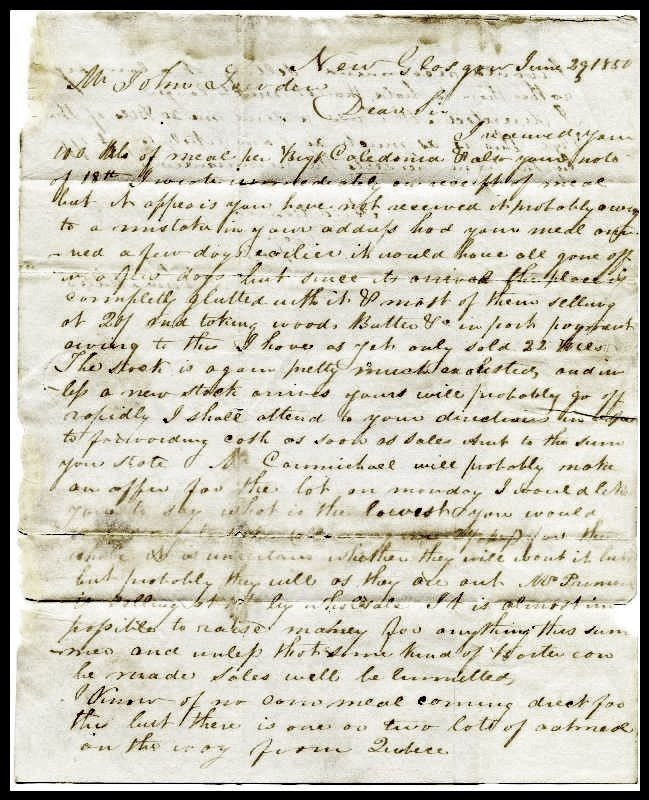 New Glasgow June 29 1850
Mr John
Dear Sir
I received your
100 bbls of meal per Brigt Caledonia & also your note
of 18th I wrote immediately on receipt of meal
but it appears you have not received it probably owing
to a mistake in your address had your meal arri
-ved a few days earlier it would have all gone off
in a few days but since its arrival the place is
completly glutted with it & most of them selling
at 20/ and taking wood Butter &c in part payment
owing to this I have as yet only sold 22 bbls
The stock is again pretty much exhausted, and un
less a new stock arrives yours will probably go off
rapidly I shall attend to your directions in
to forwarding cash as soon as sales amt to the sum
you state Mr Carmichael will probably make
an offer for the lot on monday I would like
you to say what is the lowest you would
for the
whole it is uncertain whether they will want it but
but probably they will as they are out Mr
is selling at by wholesale It is almost im
possible to raise money for anything this sum
mer and unless that some kind of barter can
be made sales will be limmitted
I know of no corn meal coming direct for
this but there is one or two lots of oatmeal
on the way from Quebec